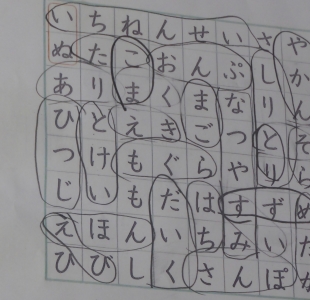 いちねんせいさや
ぬたこおんぷしか
ありまくまなりん
ひとえきごつとそ
つけもぐらやりら
じいもだはすずめ
えほんいちみいた
ひびしくさんぽが